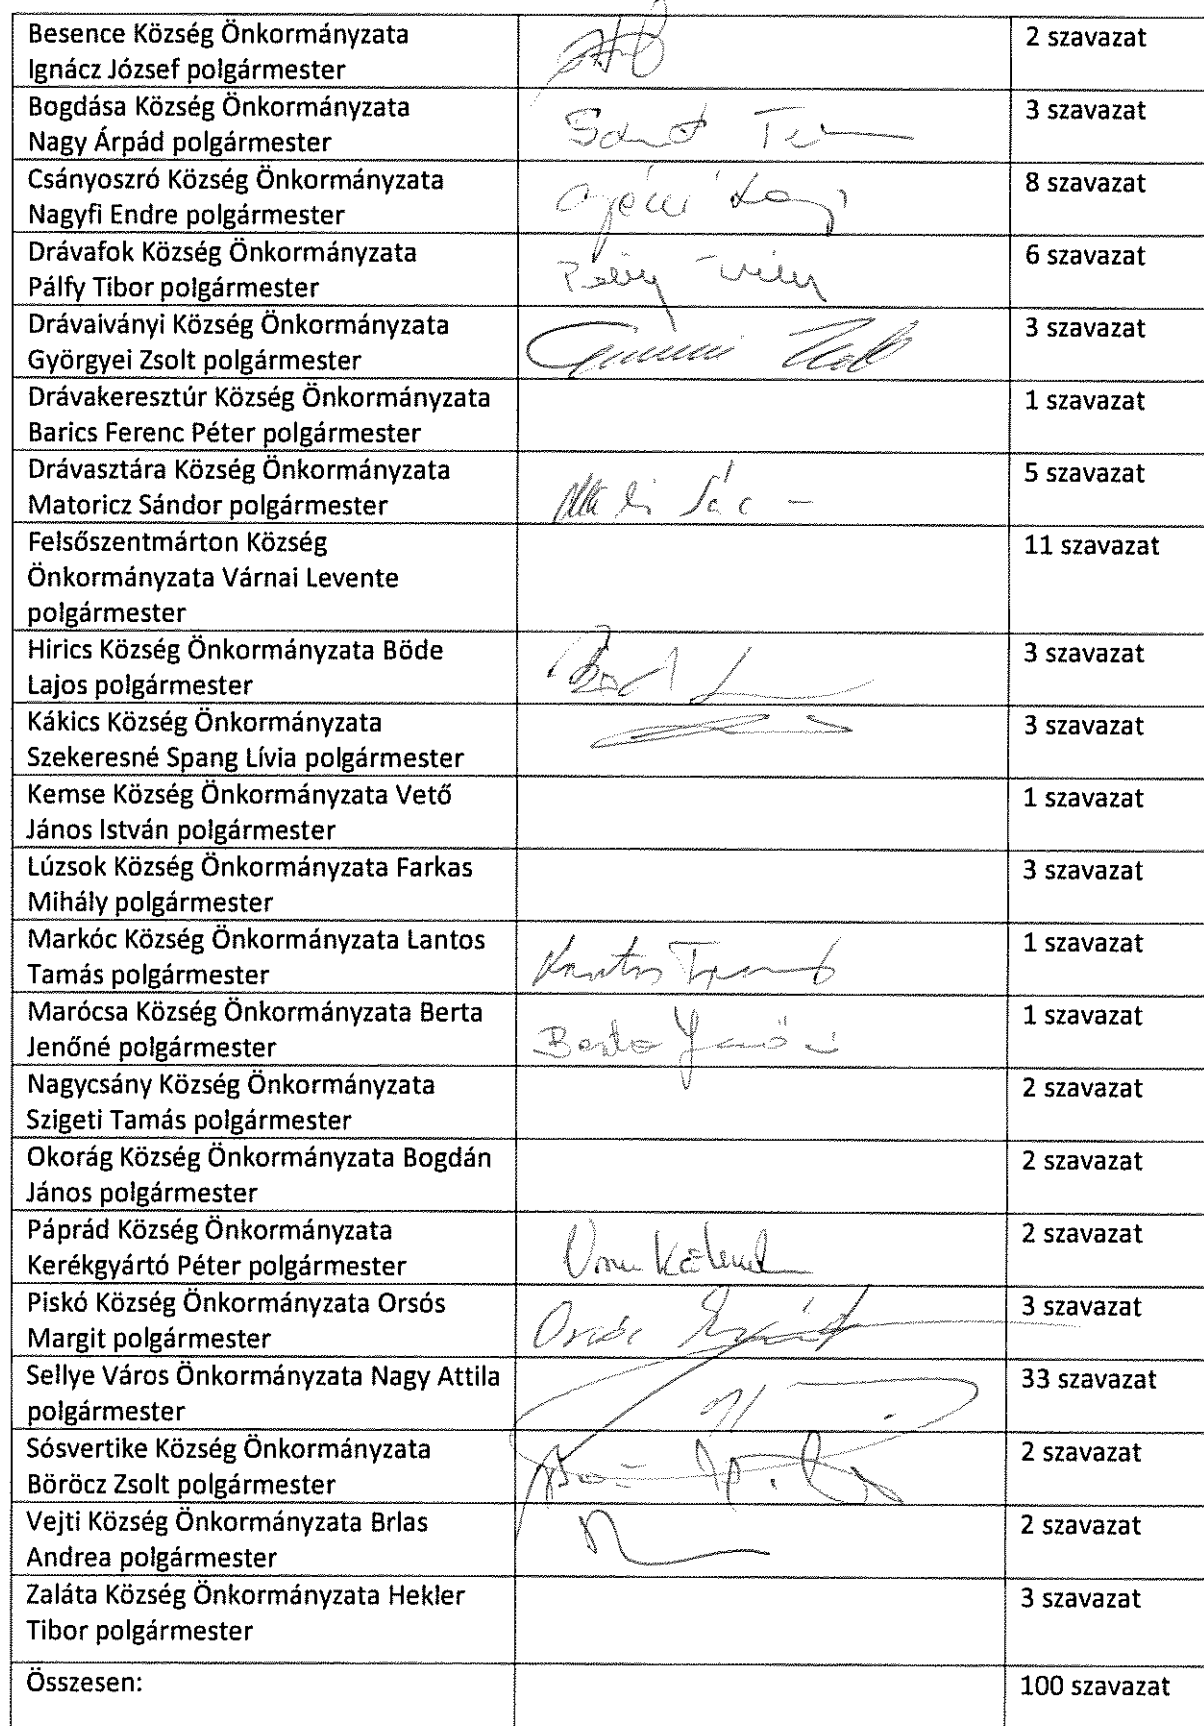 Besence Község Önkormányzata
Ignácz József polgármester
2 szavazat
Bogdása Község Önkormányzata
Nagy Árpád polgármester
3 szavazat
Csányoszró Község Önkormányzata
Nagyfi Endre polgármester
8 szavazat
Drávafok Község Önkormányzata
Pálfy Tibor polgármester
6 szavazat
Drávaiványi Község Önkormányzata
Györgyei Zsolt polgármester
3 szavazat
Drávakeresztúr Község Önkormányzata
Barics Ferenc Péter polgármester
1 szavazat
Drávasztára Község Önkormányzata
Matoricz Sándor polgármester
5 szavazat
Felsőszentmárton Község
Önkormányzata Várnai Levente
polgármester
11 szavazat
Hirics Község Önkormányzata Böde
Lajos polgármester
3 szavazat
Kákics Község Önkormányzata
Szekeresné Spang Lívia polgármester
3 szavazat
Kemse Község Önkormányzata Vető
János István polgármester
1 szavazat
Lúzsok Község Önkormányzata Farkas
Mihály polgármester
3 szavazat
Markóc Község Önkormányzata Lantos
Tamás polgármester
1 szavazat
Marócsa Község Önkormányzata Berta
Jenőné polgármester
Berta Jenőné
1 szavazat
Nagycsány Község Önkormányzata
Szigeti Tamás polgármester
2 szavazat
Okorág Község Önkormányzata Bogdán
János polgármester
2 szavazat
Páprád Község Önkormányzata
Kerékgyártó Péter polgármester
2 szavazat
Piskó Község Önkormányzata Orsós
Margit polgármester
Orsós
3 szavazat
Sellye Város Önkormányzata Nagy Attila
polgármester
33 szavazat
Sósvertike Község Önkormányzata
Böröcz Zsolt polgármester
2 szavazat
Vejti Község Önkormányzata Brlas
Andrea polgármester
2 szavazat
Zaláta Község Önkormányzata Hekler
Tibor polgármester
3 szavazat
Összesen:
100 szavazat